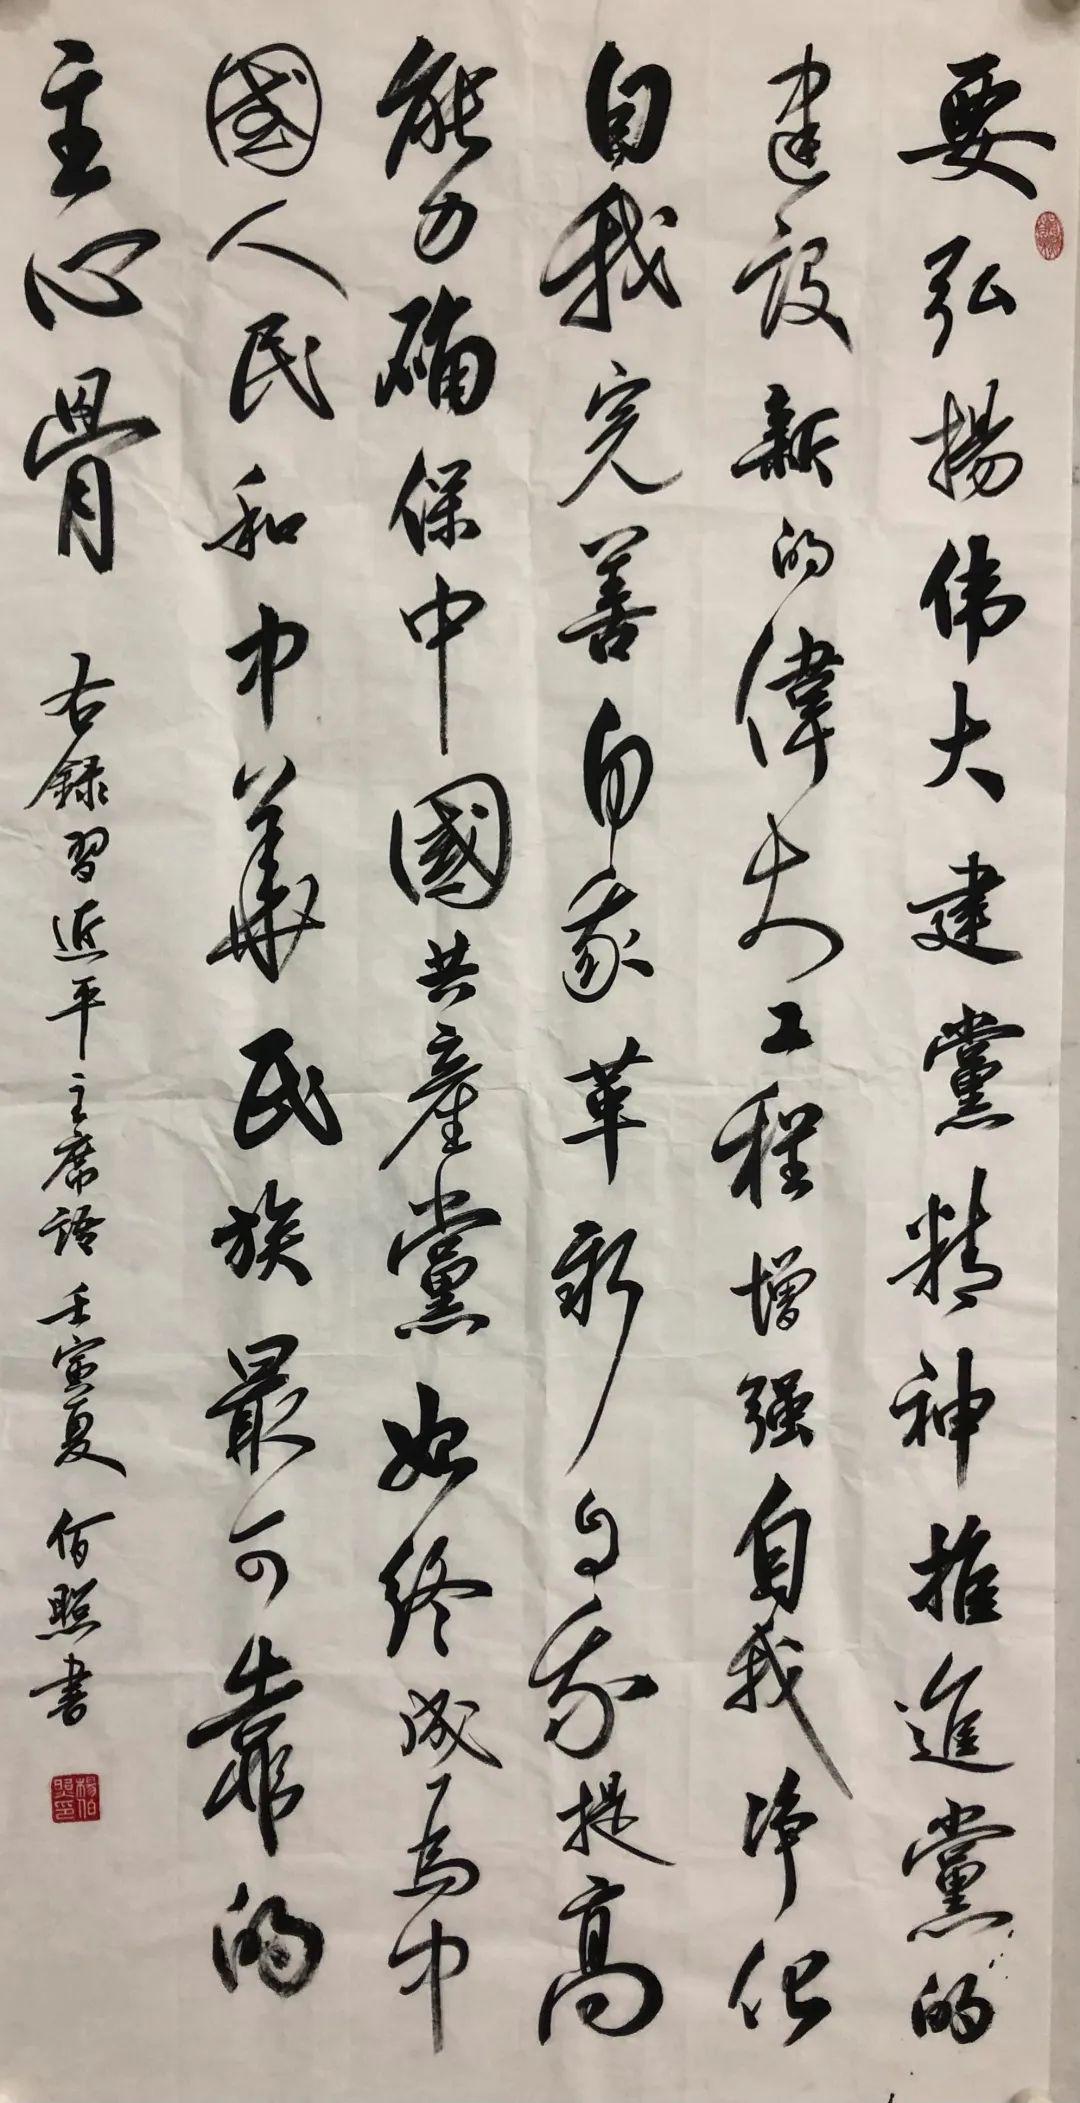 要弘揚偉大建黨精神推進黨的
建設新的偉大工程增強自我净化
自我完善自我革新自我提高
能力確保中國共產黨始終成爲中
國人民和中華民族最可靠的
主心骨
右録習近平主席語壬寅夏佰照書
楊伯照印